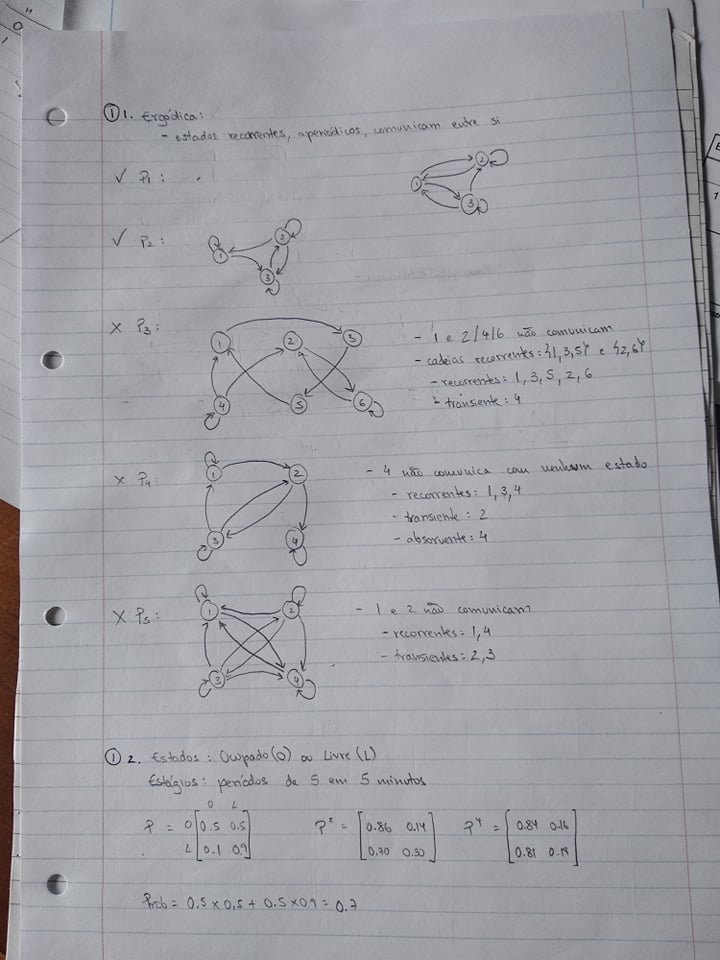 ① 1. Ergódica:
- estados recorrentes, aperiódicos, comunicam entre si
✓ P1 :
1 2 3
✓ P2 :
1 2 3
× P3 :
1 2 3
4 5 6
- 1 e 2/4/6 não comunicam
- cadeias recorrentes: {1,3,5} e {2,6}
- recorrentes: 1, 3, 5, 2, 6
- transiente: 4
× P4:
1 2
3 4
- 4 não comunica com nenhum estado
- recorrentes: 1, 3, 4
- transiente: 2
- absorvente: 4
× P5:
1 2
3 4
- 1 e 2 não comunicam
- recorrentes: 1, 4
- transientes: 2, 3
① 2. Estados: Ocupado (O) ou Livre (L)
Estágios: períodos de 5 em 5 minutos
O L
P = O [0.5 0.5]
L [0.1 0.9]
P² = [0.86 0.14]
[0.70 0.30]
P⁴ = [0.84 0.16]
[0.81 0.19]
Prob = 0.5 × 0.5 + 0.5 × 0.9 = 0.7